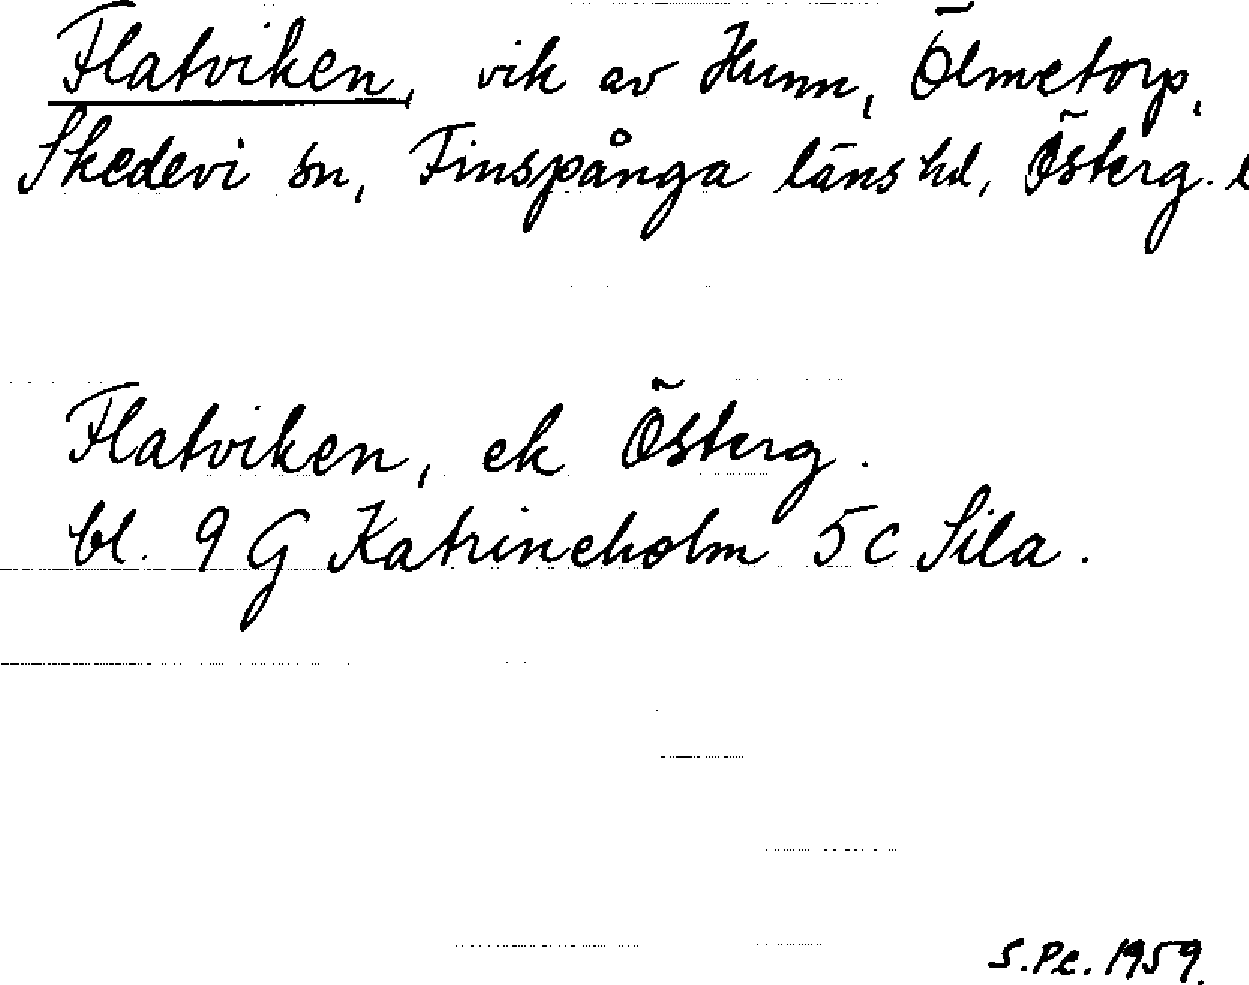 Flatviken, vik av Hunn, Ölmetorp,
Skedevi sn, Finspånga läns hd, Österg. l
Flatviken, ek Österg.
bl. 9 G Katrineholm 5 c Sila.
S.Pe. 1959.